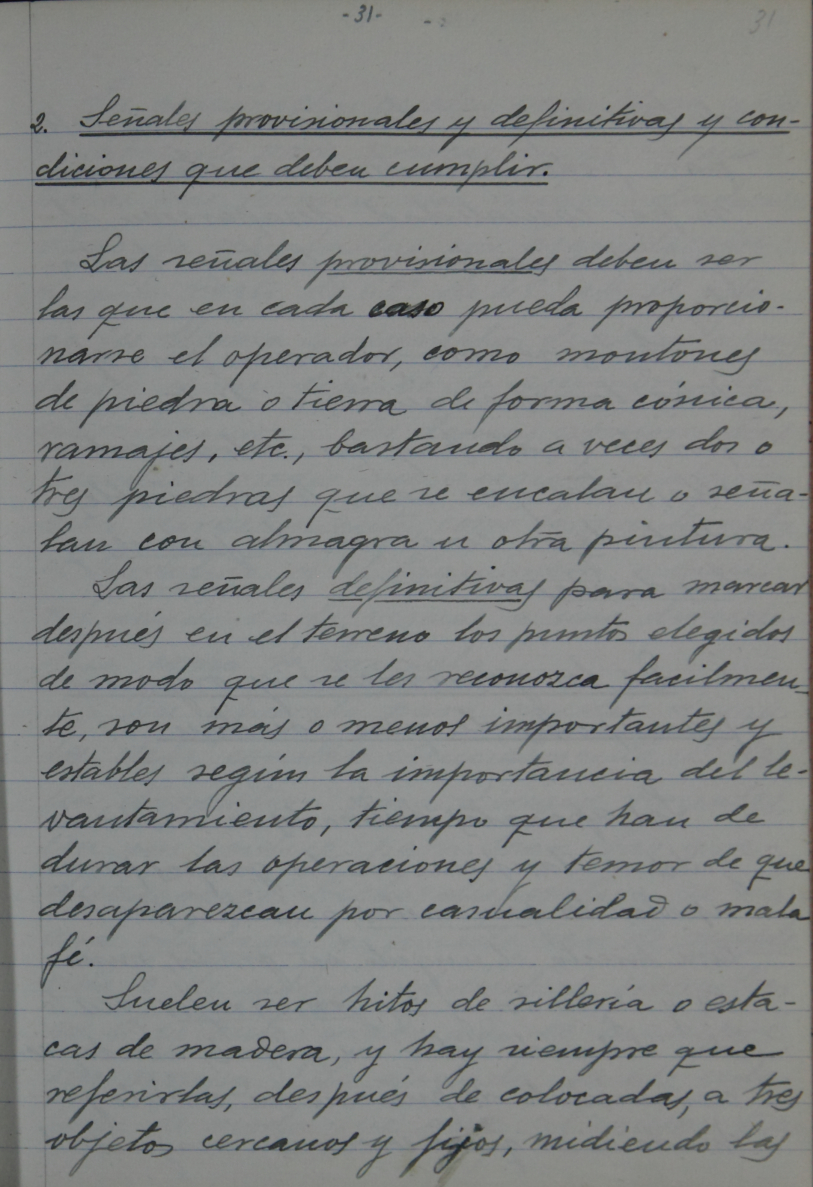 -31-
31
2. Señales provisionales y definitivas y con-
diciones que deben cumplir.
Las señales provisionales deben ser
las que en cada caso pueda proporcio-
narse el operador, como montones
de piedra o tierra de forma cónica,
ramajes, etc., bastando a veces dos o
tres piedras que se encalan o seña-
lan con almagra u otra pintura.
Las señales definitivas para marcar
después en el terreno los puntos elegidos
de modo que se les reconozca facilmen-
te, son más o menos importantes y
estables según la importancia del le-
vantamiento, tiempo que han de
durar las operaciones y temor de que
desaparezcan por casualidad o mala
fé.
Suelen ser hitos de sillería o esta-
cas de madera, y hay siempre que
referirlas, después de colocadas, a tres
objetos cercanos y fijos, midiendo las